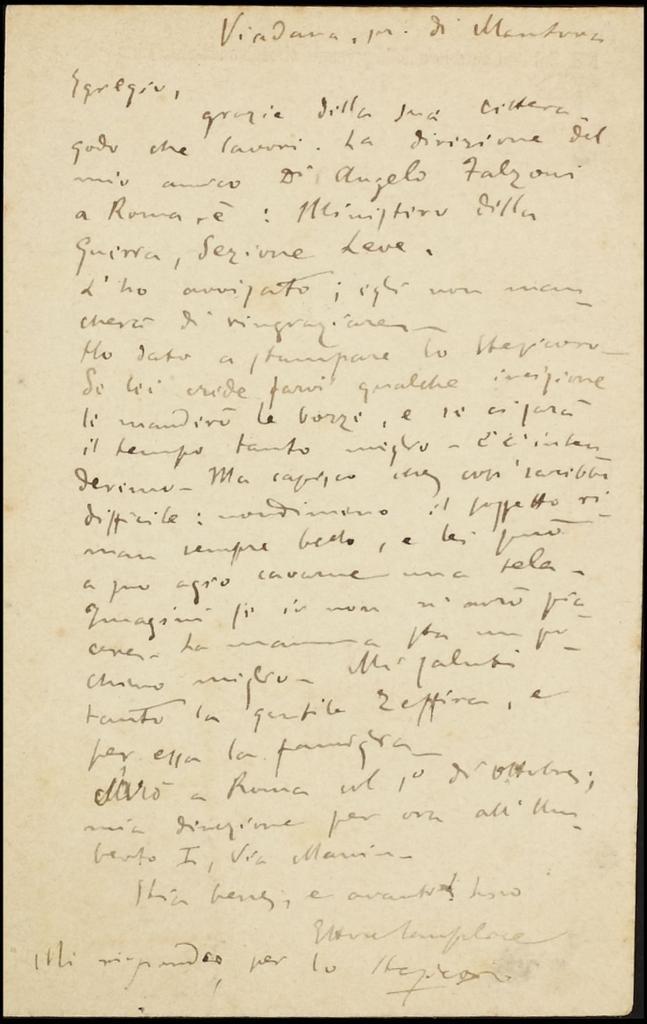 Viadana, pr. di Mantova
Egregio,
grazie della sua lettera
godo che lavori. La direzione del
mio amico Di Angelo Falzoni
a Roma, è: Ministero della
Guerra, Sezione Leve.
L'ho avvisato; egli non man-
cherà di ringraziare—
Ho dato a stampare lo Stesicoro—
Se lei crede farvi qualche incisione
le manderò le bozze, e se ci sarà
il tempo tanto meglio— e c'inten
deremo— Ma capisco che così sarebbe
difficile: nondimeno il soggetto ri-
man sempre bello, e lei può
a suo agio cavarne una tela—
Imagini se io non n'avrò pia
cere— La mamma sta un po-
chino meglio— Mi saluti
tanto la gentile Zeffira, e
per essa la famiglia—
Sarò a Roma col 1º di ottobre;
mia direzione per ora all'Um-
berto I, Via Manin—
Stia bene, e avanti! Suo
Ettore
Mi risponda, per lo Stesicoro